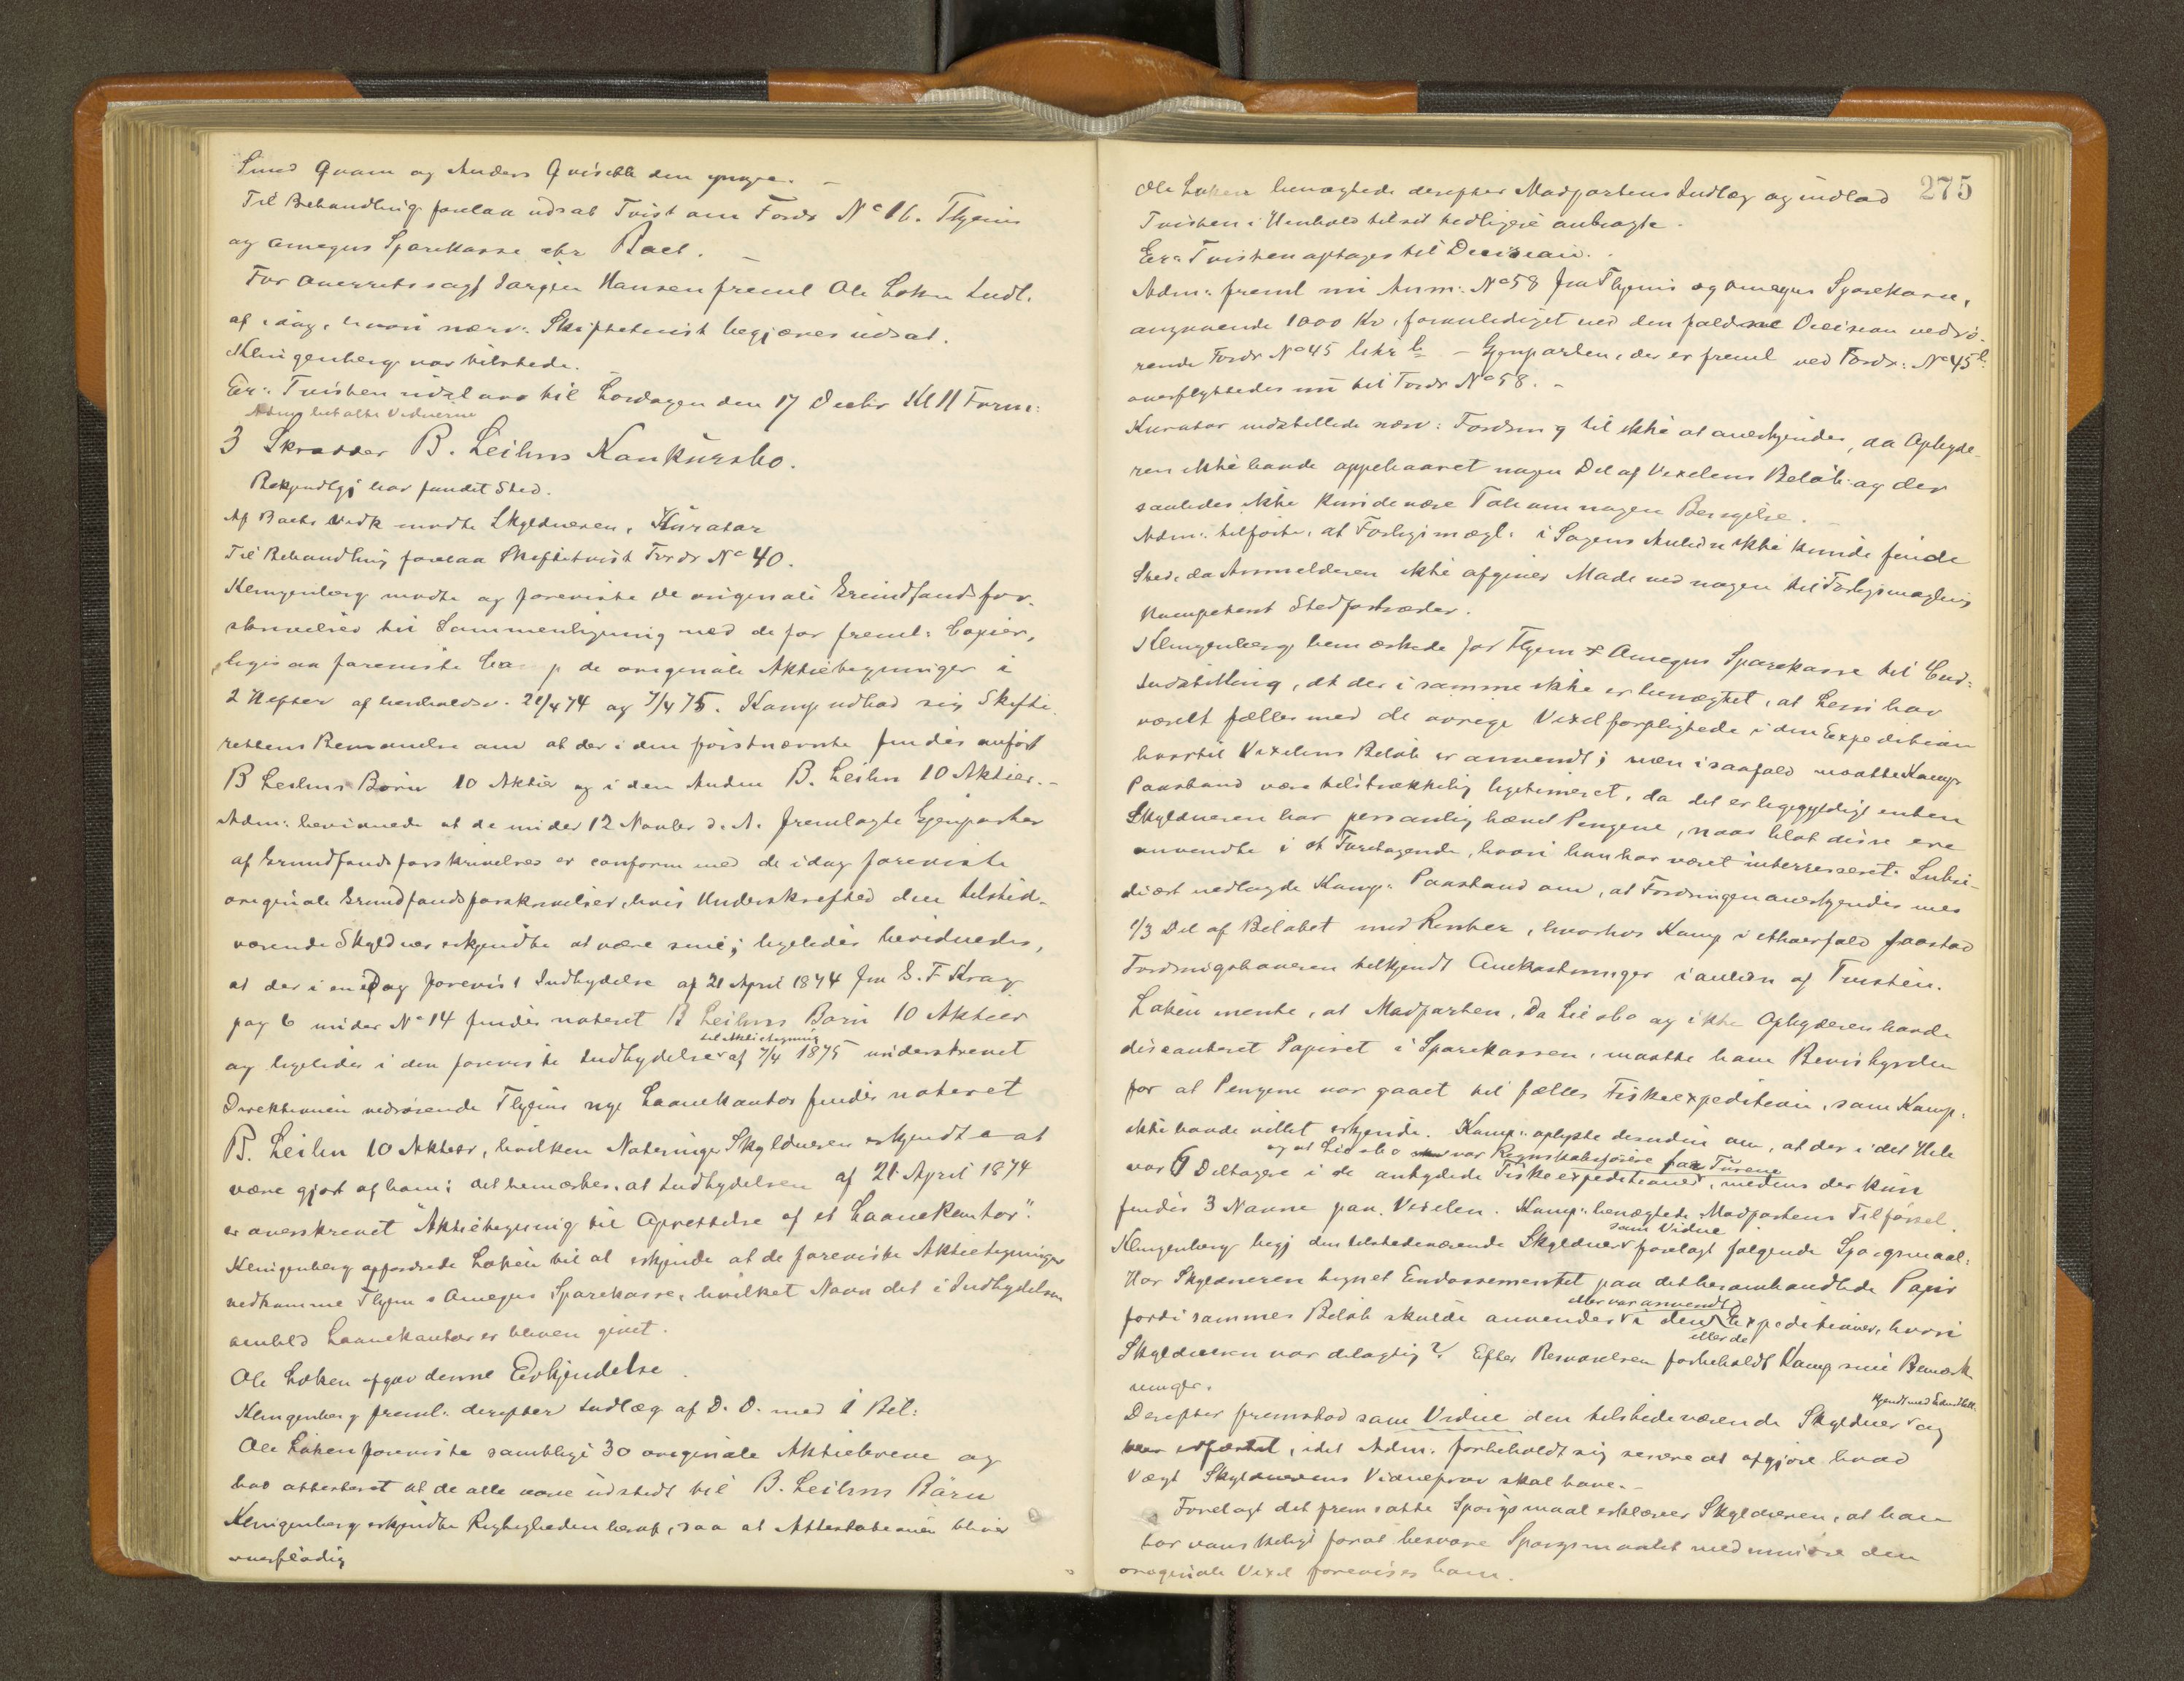 Sund Qvam og Anders Qvisth den yngre. –
Til Behandling forelaa udsat Tvist om Fordr No 16. Flyens
og omegns Sparekasse ctr Boet. –
For Overretssagf Jørgen Hansen freml Ole Løken Indl.
af idag, hvori nærv: Skiftetvist begjæres udsat.
Klingenberg var tilstede.
Er: Tvisten udsl ovs til Lørdagen den 17 Decbr Kl 11 Form:
Adm: beholdt Vidnerne
3 Skrædder B. Leihns Konkursbo.
Bekjendtgj har fundet Sted.
Af Boets Vedk mødte Skyldneren, Kurator
Til Behandling forelaa Skiftetvist Fordr No 40.
Klingenberg mødte og foreviste de originale Grundfondsfor-
skrivelser til Sammenligning med de før freml: Copier,
ligesaa foreviste Comp de originale Aktietegninger i
2 Hefter af henholdsv. 21/4 74 og 7/4 75. Komp udbad sig Skifte
rettens Bemærkelse om at der i den førstnævnte findes anført
B Leihns Børn 10 Aktier og i den Anden B. Leihn 10 Aktier. –
Adm: bevidnede at de under 12 Novbr d. A. fremlagte Gjenparter
af Grundfondsforskrivelser er conform med de idag foreviste
originale Grundfondsforskrivelser, hvis Underskrifted den tilsted-
værende Skyldner erkjendte at være sine; ligeledes bevidnedes,
at der i en idag forevist Indbydelse af 21 April 1874 fra S. F Krag
pag 6 under No 14 findes noteret B Leihns Børn 10 Aktier
til Aktietegning
og ligeledes i den foreviste Indbydelse af 7/4 1875 underskrevet
Direktionen vedrørende Flyens nye Laanekontor findes noteret
B. Leihn 10 Aktier, hvilken Notering Skyldneren erkjendte at
være gjort af ham; det bemærkes, at Indbydelsen af 21 April 1874
er overskrevet "Aktietegning til Oprettelse af et Laanekontor".
Klingenberg opfordrede Løken til at erkjende at de foreviste Aktietegninger
vedkomme Flyen & Omegns Sparekasse, hvilket Navn det i Indbydelsen
omhld Laanekontor er bleven givet.
Ole Løken afgav denne Erkjendelse.
Klingenberg freml: derefter Indlæg af D. D. med 1 Bil:
Ole Løken foreviste samtlige 30 originale Aktiebreve og
bad attesteret at de alle vare udstedt til B. Leihns Børn
Klingenberg erkjendte Rigtigheden heraf, saa at Attestationen bliver
overflødig
275
Ole Løken benægtede derefter Modpartens Indlæg og indlod
Tvisten i Henhold til sit tidligere anbragte.
Er: Tvisten optages til Decision.
Adm: freml nu Anm: No 58 fra Flyens og omegns Sparekasse,
angaaende 1000 Kr, foranlediget ved den faldne Decision vedrø-
rende Fordr No 45 litr b – Gjenparten, der er freml ved Fordr: No 45 b
overflyttedes nu til Fordr No 58. –
Kurator indstillede nærv: Fordring til ikke at anerkjendes, da Opbyde-
ren ikke havde oppebaaret nogen Del af Vexelens Beløb og der
saaledes ikke kunde være Tale om nogen Berigelse. –
Adm: tilførte, at Forligsmægl: i Sagens Anledn ikke kunde finde
Sted, da Anmelderen ikke afgives Møde ved nogen til Forligsmægling
kompetent Stedfortræder.
Klingenberg bemærkede for Flyens & Omegns Sparekasse til Cur:
Indstilling, at der i samme ikke er benægtet, at Leih har
været fælles med de øvrige Vexelforpligtede i den Expedition
hvortil Vexelens Beløb er anvendt; men i saafald maatte Komp
Paastand være tilstrækkelig legitimeret, da det er ligegyldigt enten
Skyldneren har personlig hævet Pengene, naar blot disse ere
anvendte i et Foretagende, hvori han har været interresseret. Subsi-
diært nedlagde Komp: Paastand om, at Fordringen anerkjendes med
1/3 Del af Beløbet med Renter, hvorhos Komp i ethvertfald paastod
Fordringshaveren tilkjendt Omkostninger i anledn af Tvisten.
Løken mente, at Modparten, da Liesbo og ikke Opbyderen havde
discanteret Papiret i Sparekassen, maatte have Bevisbyrden
for at Pengene var gaaet til fælles Fiskeexpedition, som Komp:
ikke havde villet erkjende. Komp: oplyste desuden om, at der i det Hele
og at Liesbo var Regnskabsfører for Turene
var 6 Deltagere i de antydede Fiskeexpeditioner, medens der kun
findes 3 Navne paa Vexelen. Komp: benægtede Modpartens Tilførsel.
som Vidne
Klingenberg begj den tilstedeværende Skyldner forelagt følgende Spørgsmaal:
Har Skyldneren tegnet Endossementet paa det heromhandlede Papir
eller var anvendt
fordi sammes Beløb skulde anvendes i den Expeditioner, hvori
eller de
Skyldneren var delagtig? Efter Besvarelsen forbeholdt Komp sine Bemærk
ninger.
kjendt med Sandhedl.
Derefter fremstod som Vidne den tilstedeværende Skyldner og
blev edfæstet, idet Adm: forbeholdt sig senere at afgjøre hvad
Vægt Skyldnerens Vidneprov skal have. –
Forelagt det fremsatte Spørgsmaal erklærer Skyldneren, at han
har vanskeligt forat besvare Spørgsmaalet medmindre den
originale Vexel forevises ham.